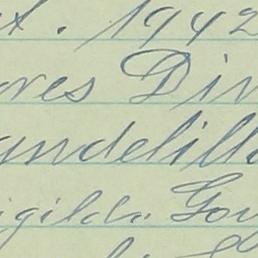 t. 1942
ores Din
andelill
igilda Gon